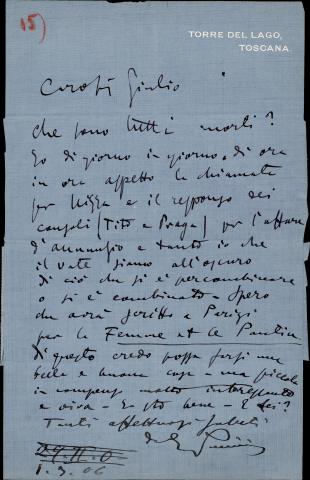 15)
TORRE DEL LAGO,
TOSCANA.
Caro Sig Giulio
che sono tutti morti?
Io di giorno in giorno, di ora
in ora aspetto la chiamata
per Nizza e il responso dei
consoli (Tito e Praga) per l'affare
d'Annunzio e tanto io che
il vate siamo all'oscuro
di ciò che si è per combinare
o si è combinato - Spero
che avrà scritto a Parigi
per la Femme et le Pantin
di questo credo possa farsi una
bella e buona cosa - ma piccola
in compenso molto interessante
e viva - Io sto bene - E Lei?
Tanti affettuosi saluti
del G Puccini
1.3.06